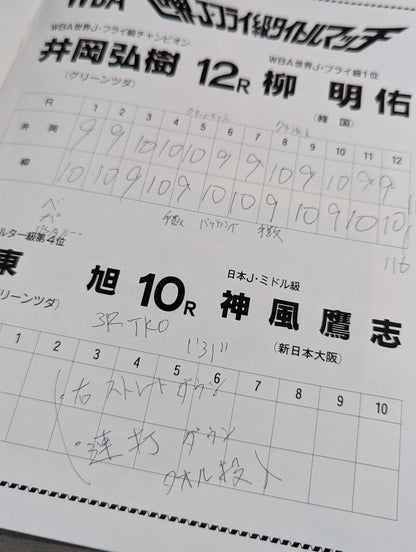 WBA 世界J・フライ級タイトルマッチ
WBA世界J・フライ級チャンピオン
井岡弘樹 12R 柳 明佑
WBA世界J・フライ級1位
(グリーンツダ)
(韓国)
R 1 2 3 4 5 6 7 8 9 10 11 12
井岡 9 9 10 10 10 9 9 10 9 10 9 9
柳 10 10 9 9 10 10 10 9 10 9 10 10
手数
手数
116
ルター級第4位
日本J・ミドル級
東 旭 10R 神風鷹志
リーンツダ)
(新日本大阪)
3R TKO
1'31"
1 2 3 4 5 6 7 8 9 10
右ストレート ダウン
連打 ダウン
タオル投入